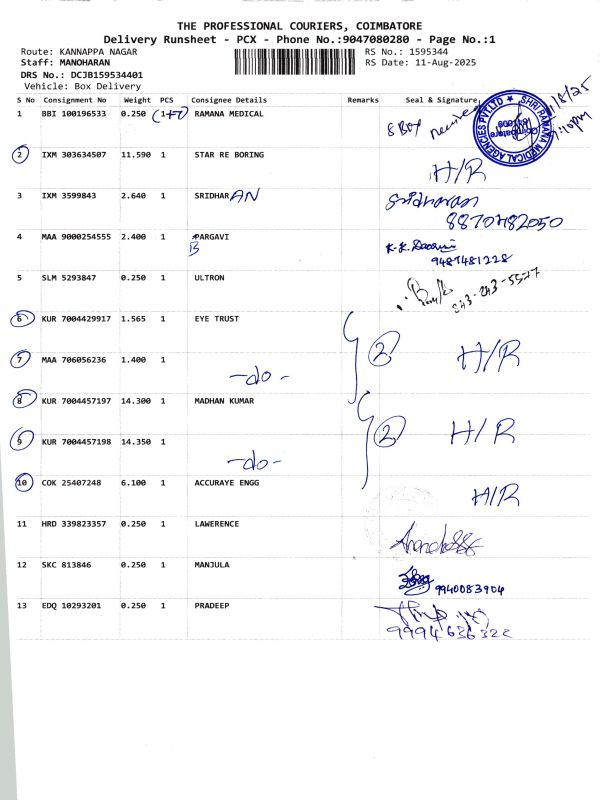 THE PROFESSIONAL COURIERS, COIMBATORE
Delivery Runsheet - PCX - Phone No.:9047080280 - Page No.:1
Route: KANNAPPA NAGAR RS No.: 1595344
Staff: MANOHARAN RS Date: 11-Aug-2025
DRS No.: DCJB159534401
Vehicle: Box Delivery
S No Consignment No Weight PCS Consignee Details Remarks Seal & Signature
1 BBI 100196533 0.250 1+7 RAMANA MEDICAL 8 Box received SHRI RAMANA MEDICAL AGENCIES PVT LTD Coimbatore
2 IXM 303634507 11.590 1 STAR RE BORING H/R
3 IXM 3599843 2.640 1 SRIDHARAN Sridharan
8870482050
4 MAA 9000254555 2.400 1 PARGAVI K.K.
B 9487481228
5 SLM 5293847 0.250 1 ULTRON
6 KUR 7004429917 1.565 1 EYE TRUST
7 MAA 706056236 1.400 1 2 H/R
-do-
8 KUR 7004457197 14.300 1 MADHAN KUMAR
9 KUR 7004457198 14.350 1 2 H/R
-do-
10 COK 25407248 6.100 1 ACCURAYE ENGG H/R
11 HRD 339823357 0.250 1 LAWERENCE
12 SKC 813846 0.250 1 MANJULA 9940083904
13 EDQ 10293201 0.250 1 PRADEEP
9994636322